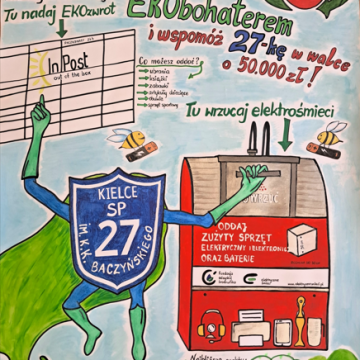 Tu nadaj EKOzwrot
EKObohaterem
i wspomóż 27-kę w walce
o 50.000 zł!
InPost
out of the box
Co możesz oddać?
ubrania
książki
zabawki
artykuły dziecięce
obuwie
sprzęt sportowy
Tu wrzucaj elektrośmieci
ODDAJ
ZUŻYTY SPRZĘT
ELEKTRYCZNY I ELEKTRONICZNY
ORAZ BATERIE
KIELCE
SP
27
IM. K.K. BACZYŃSKIEGO